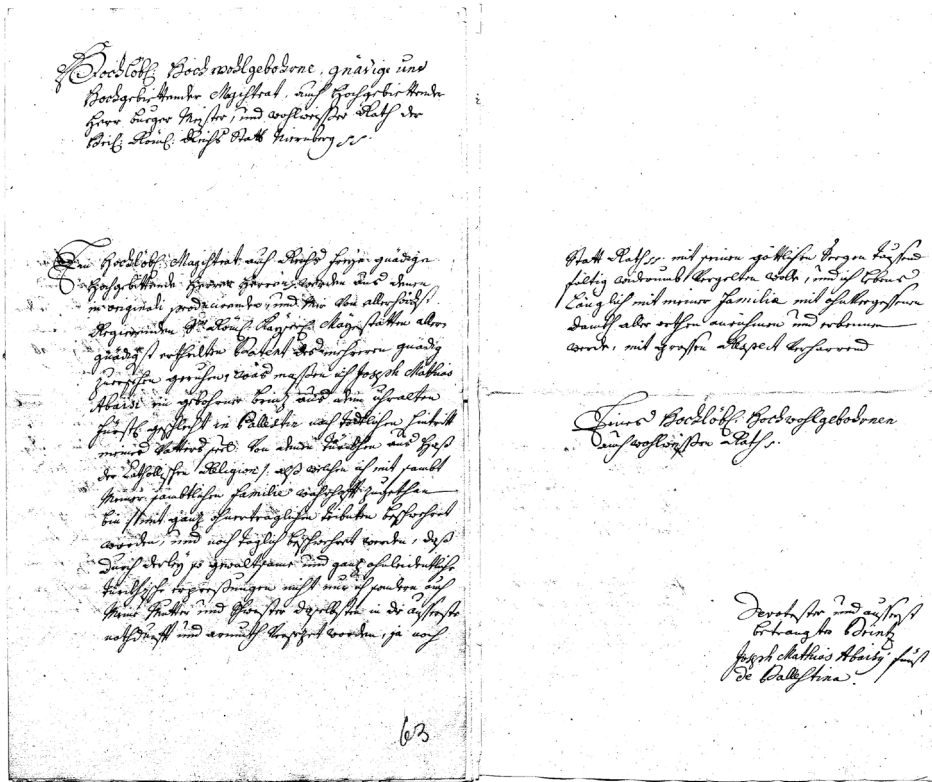 Hochlöbl: Hochwohlgebohrne, gnädige und
Hochgebiettender Magistrat, auch Hochgebiettende
Herr burger Meister, und wohlweisser Rath der
Heil: Röm: Reichs Statt Nürnberg
Hochlöbl: Magistrat auch Reichs freye gnädige
Hochgebiettende Herren Herren werden aus denen
in originali producirenden, und mir von allerhöchst
Regierenden Röm: Kayserl: Mayestätten aller
gnädigst ertheilten Patent des mehreren gnädig
zuersehen geruhen, was massen ich Joseph Mathias
Abaisi ein gebohrner Printz aus dem uhralten
fürstl: geschlecht in Pallestin nach tödtlichen hintritt
meines Vatters seel: von denen Türckhen aus Hass
der Catholischen Religion, welcher ich mit sambt
Meiner sämbtlichen familie wahrhafft zugethan
bin mit gantz ohnerträglichen tributen beschwehrt
worden, und noch täglich beschwehrt werden, dass
durch derley so gewaltsame und gantz ohnleidentliche
Türckhische erpressungen nicht nur ich sondern auch
Meine Mutter und Schwester daselbsten in die äusserste
nothdurfft und armuth versetzet worden, ja noch
63
Statt Rath mit seinen göttlichen Seegen tausend
fältig widerumb vergelten wolle, und ich lebens
länglich mit meiner familie mit ohnvergessenen
danckh aller orthen anrühmen und erkennen
werde, mit grossen Respect verharrend
Eines Hochlöbl: Hochwohlgebohrnen
auch wohlweissen Raths
Devotester und äusserst
betrangter Printz
Joseph Mathias Abaisy fürst
de Pallestina.